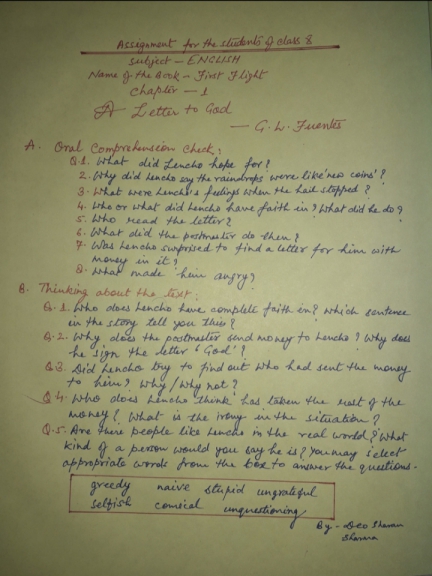 Assignment for the students of class 8
Subject - ENGLISH
Name of the Book - First Flight
Chapter - 1
A Letter to God
- G. L. Fuentes
A. Oral Comprehension Check:
Q.1. What did Lencho hope for?
2. Why did Lencho say the raindrops were like 'new coins'?
3. What were Lencho's feelings when the hail stopped?
4. Who or what did Lencho have faith in? What did he do?
5. Who read the letter?
6. What did the postmaster do then?
7. Was Lencho surprised to find a letter for him with
money in it?
8. What made him angry?
B. Thinking about the text:
Q.1. Who does Lencho have complete faith in? Which sentence
in the story tell you this?
Q.2. Why does the postmaster send money to Lencho? Why does
he sign the letter 'God'?
Q.3. Did Lencho try to find out who had sent the money
to him? Why/Why not?
Q.4. Who does Lencho think has taken the rest of the
money? What is the irony in the situation?
Q.5. Are there people like Lencho in the real world? What
kind of a person would you say he is? You may select
appropriate words from the box to answer the questions.
greedy naive stupid ungrateful
selfish comical unquestioning
By - Deo Sharan
Sharma